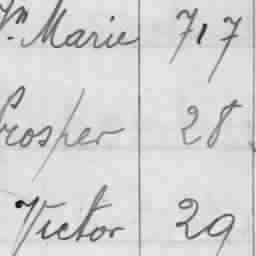 Jn Marie 7,7
Prosper 28
Victor 29